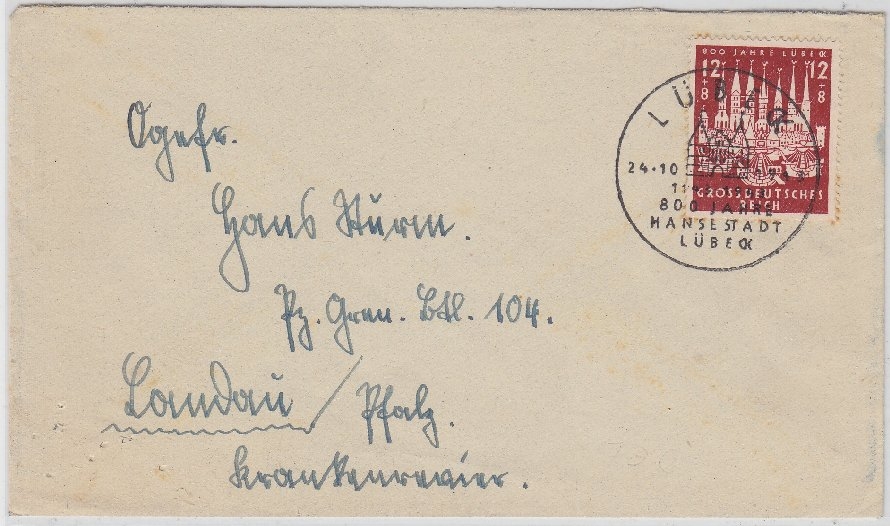 800 JAHRE LÜBECK
12 12
+ +
8 8
GROSSDEUTSCHES
REICH
LÜBECK
24.10
800 JAHRE
HANSESTADT
LÜBECK
Ogefr.
Hans Sturm.
Pz. Gren. Btl. 104.
Landau / Pfalz.
Krankenrevier.